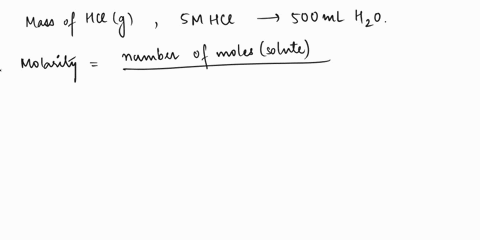 Mass of HCl (g) , 5M HCl → 500 mL H₂O.
Molarity = number of moles (solute)